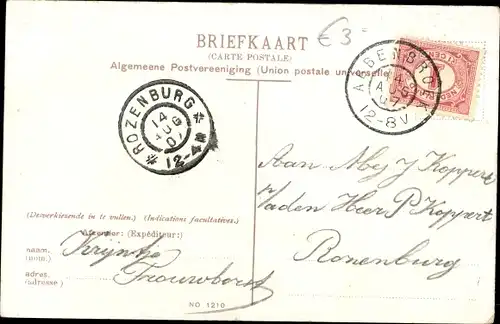 €3-
BRIEFKAART
(CARTE POSTALE)
Algemeene Postvereeniging (Union postale universelle)
ABBENBRO
14
AUG
07
12-8V
ROZENBURG
14
AUG
07
12-4N
Aan Mej J Koppert
p/a den Heer P Koppert
Rozenburg
(Desverkiezende in te vullen). (Indications facultatives).
Afzender: (Expéditeur:)
naam. Krijntje
(nom.)
adres. Trouwborst
(adresse.)
NO 1210